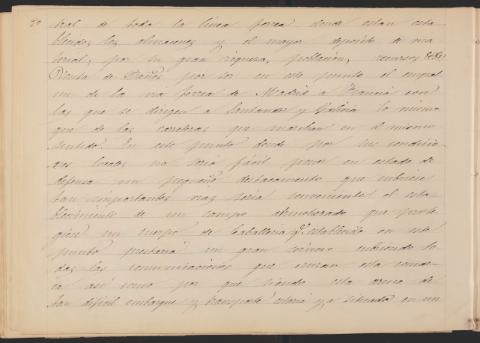 30
tral de toda la linea ferrea donde estan esta
blecidos los almacenes y el mayor deposito de ma
terial, por su gran riqueza, poblacion, recursos
por ser en este punto el empal
me de la via ferrea de Madrid a Francia con
las que se dirigen a Santander y Galicia lo mismo
que de las carreteras que marchan en el mismo
sentido. En este punto donde por sus condicio
nes locales no seria facil poner en estado de
defensa un pequeño destacamento que cubriese
tan importantes vias seria conveniente el esta
blecimiento de un campo atrincherado que prote
giera un cuerpo de Caballeria qe. establecido en este
punto prestaria un gran servicio cubriendo to
das las comunicaciones que cruzan esta comar
ca asi como por que siendo esta arma de
tan dificil embarque y transporte estaria ya situada en un